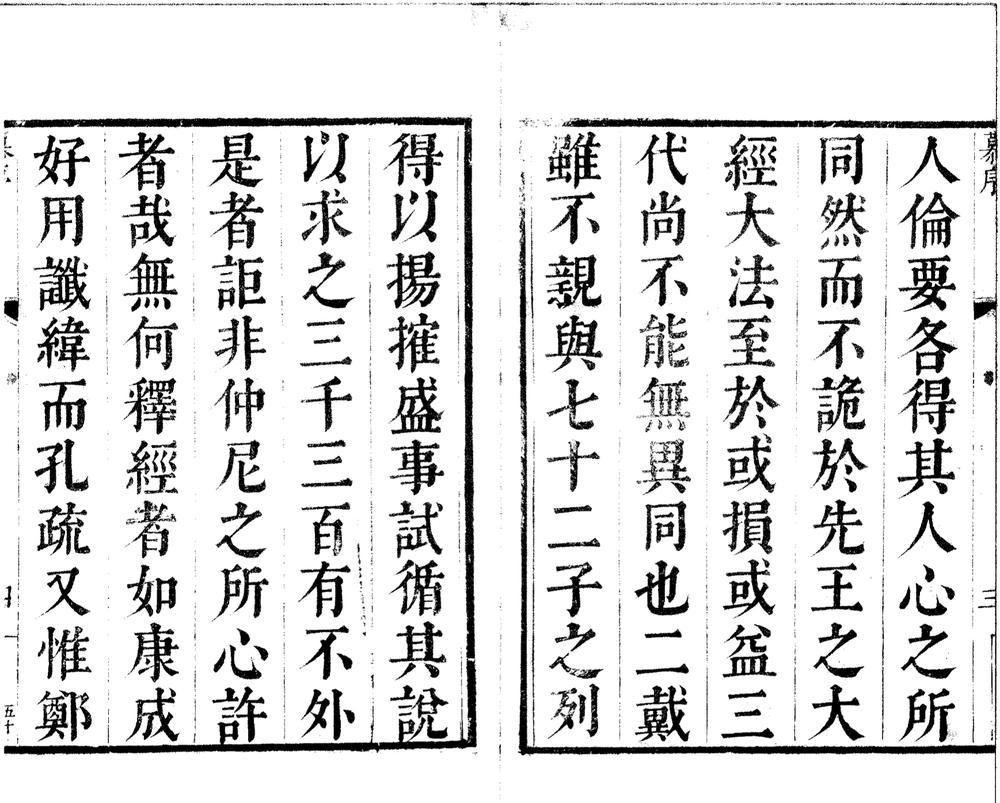 人倫要各得其人心之所
同然而不詭於先王之大
經大法至於或損或益三
代尚不能無異同也二戴
雖不親與七十二子之列
得以揚搉盛事試循其說
以求之三千三百有不外
是者詎非仲尼之所心許
者哉無何釋經者如康成
好用讖緯而孔疏又惟鄭